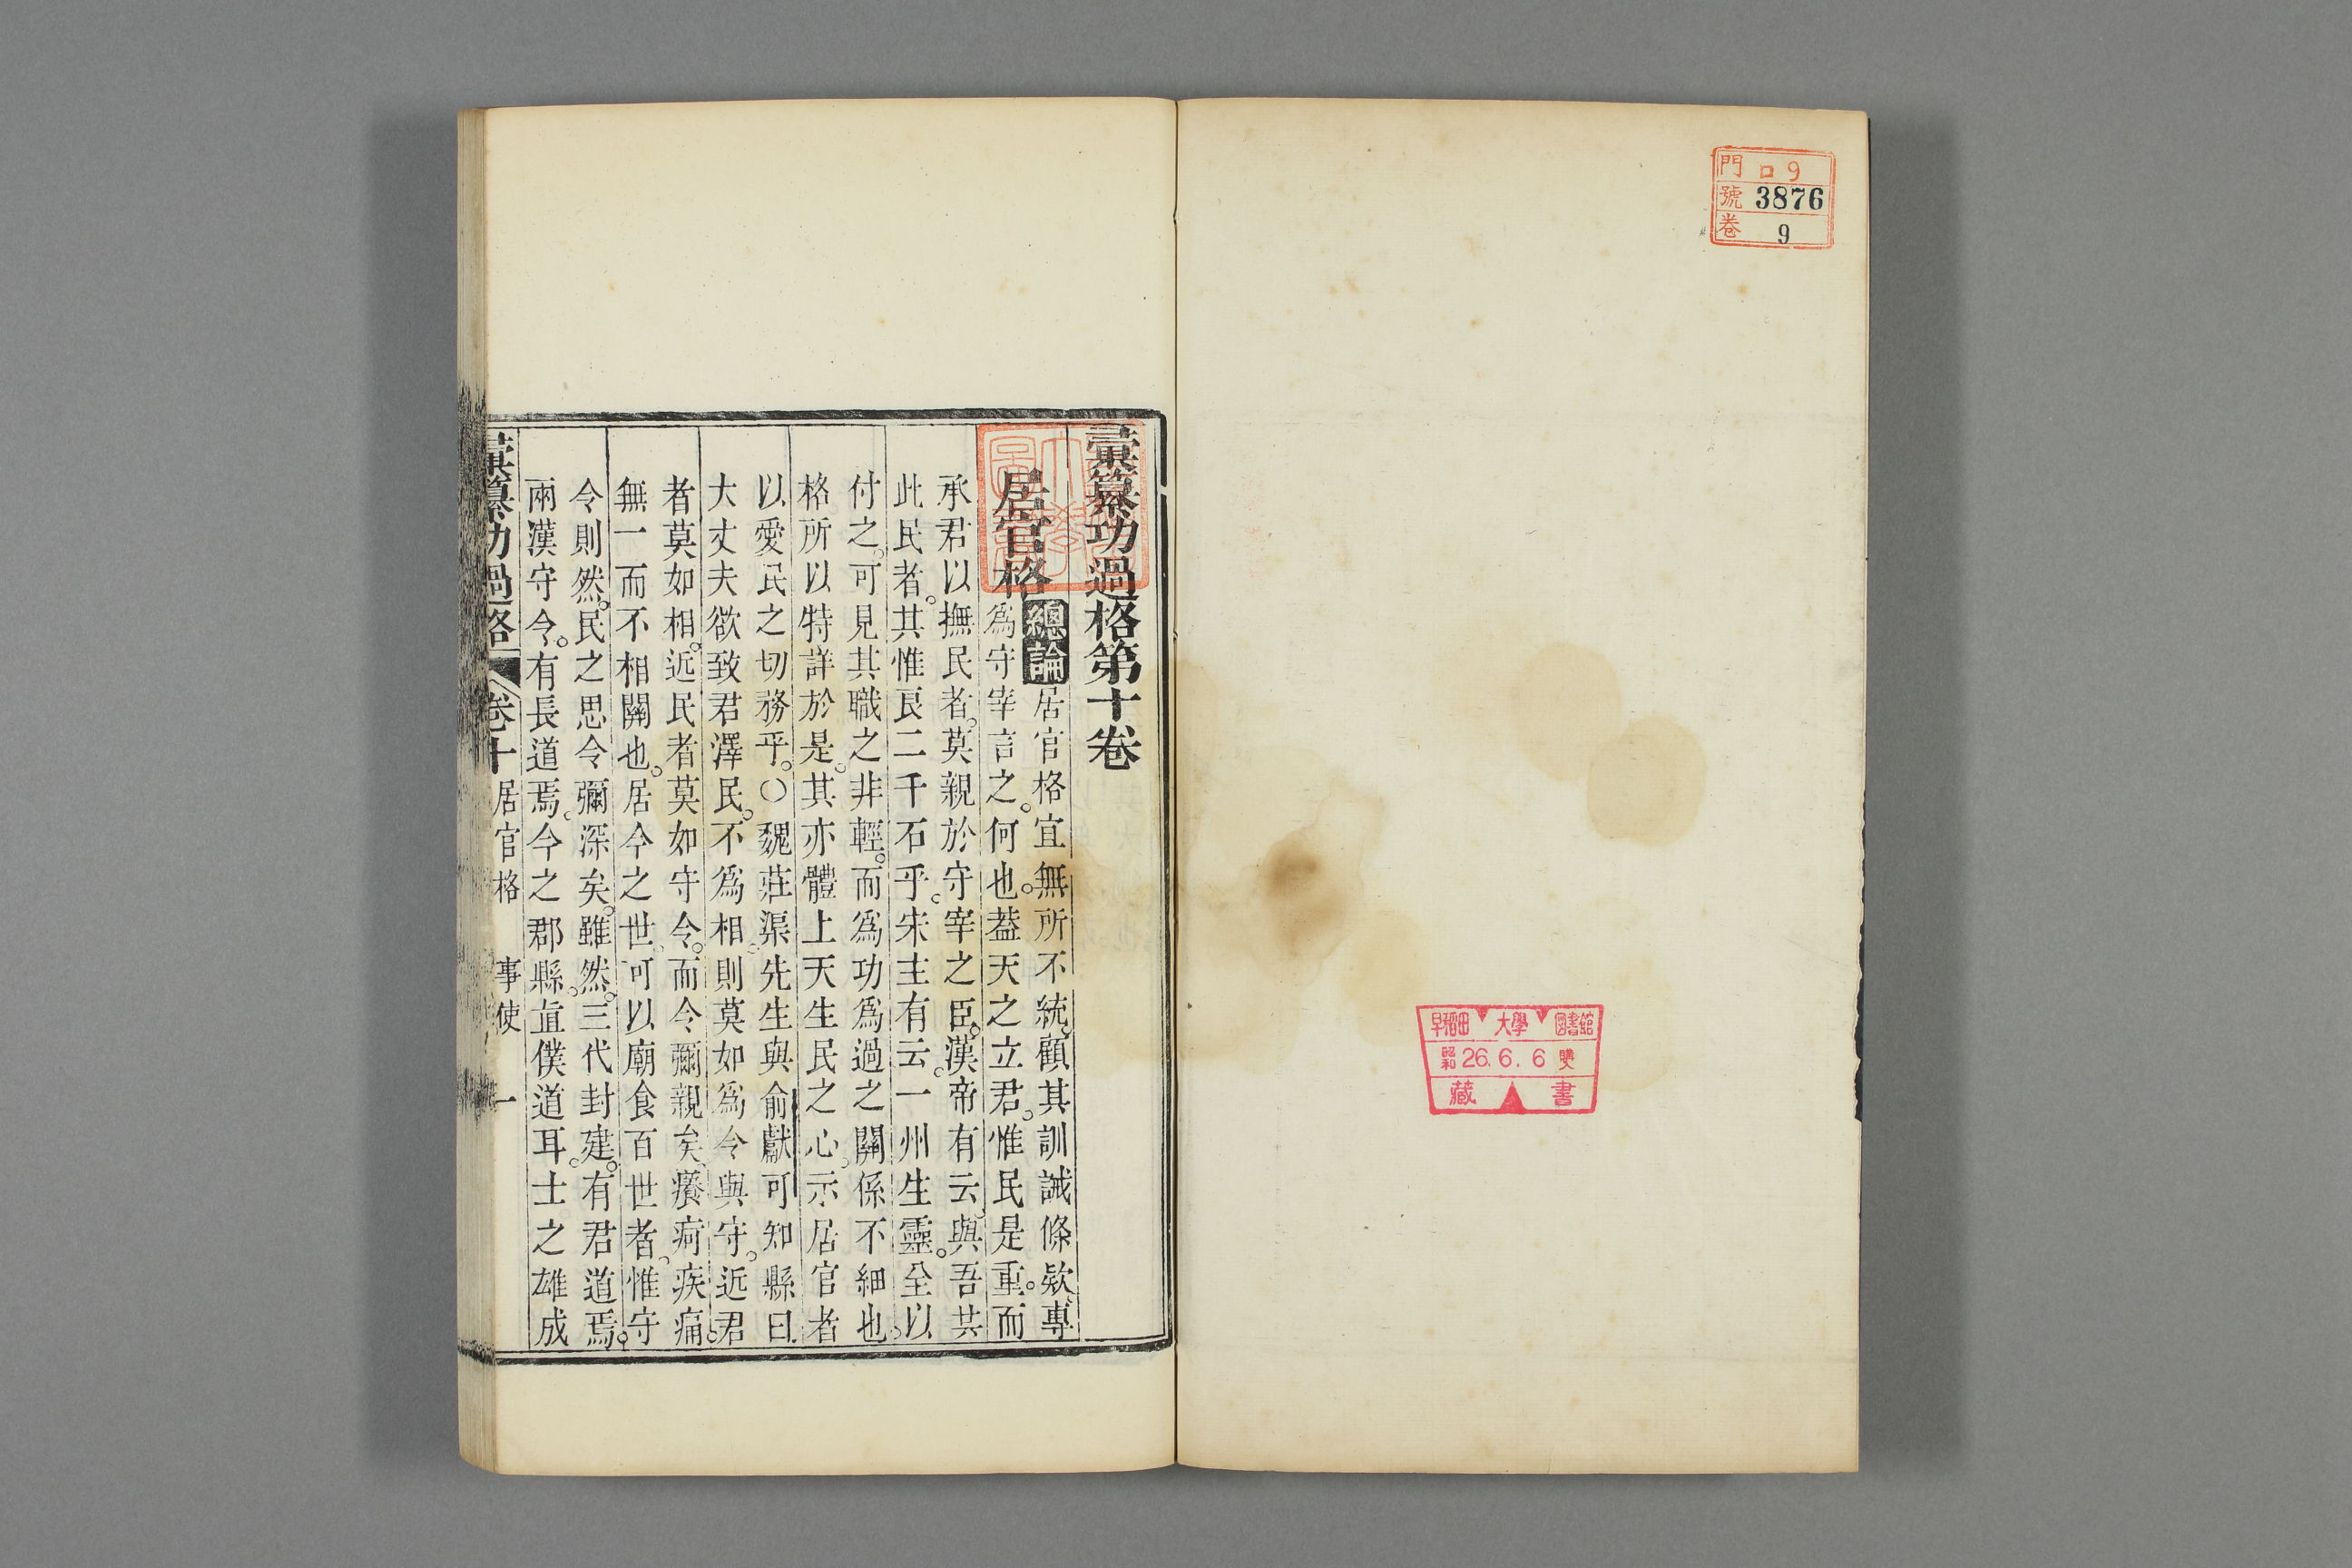 門 ロ9
號 3876
卷 9
早稲田 大學 圖書館
昭和 26.6.6
藏書
彙纂功過格第十卷
居官格 總論 居官格宜無所不統。顧其訓誡條欵。專
爲守宰言之。何也。葢天之立君。惟民是重。而
承君以撫民者。莫親於守宰之臣。漢帝有云。與吾共
此民者。其惟良二千石乎。宋主有云。一州生靈。全以
付之。可見其職之非輕。而爲功爲過之關係不細也。
格所以特詳於是。其亦體上天生民之心。示居官者
以愛民之切務乎。〇魏莊渠先生與俞獻可知縣曰
大丈夫欲致君澤民。不爲相。則莫如爲令與守。近君
者莫如相。近民者莫如守令。而令彌親矣。癢疴疾痛。
無一而不相關也。居今之世。可以廟食百世者。惟守
令則然。民之思令彌深矣。雖然。三代封建。有君道焉。
兩漢守令。有長道焉。今之郡縣。直僕道耳。士之雄成
彙纂功過格 卷十 居官格 事使 一